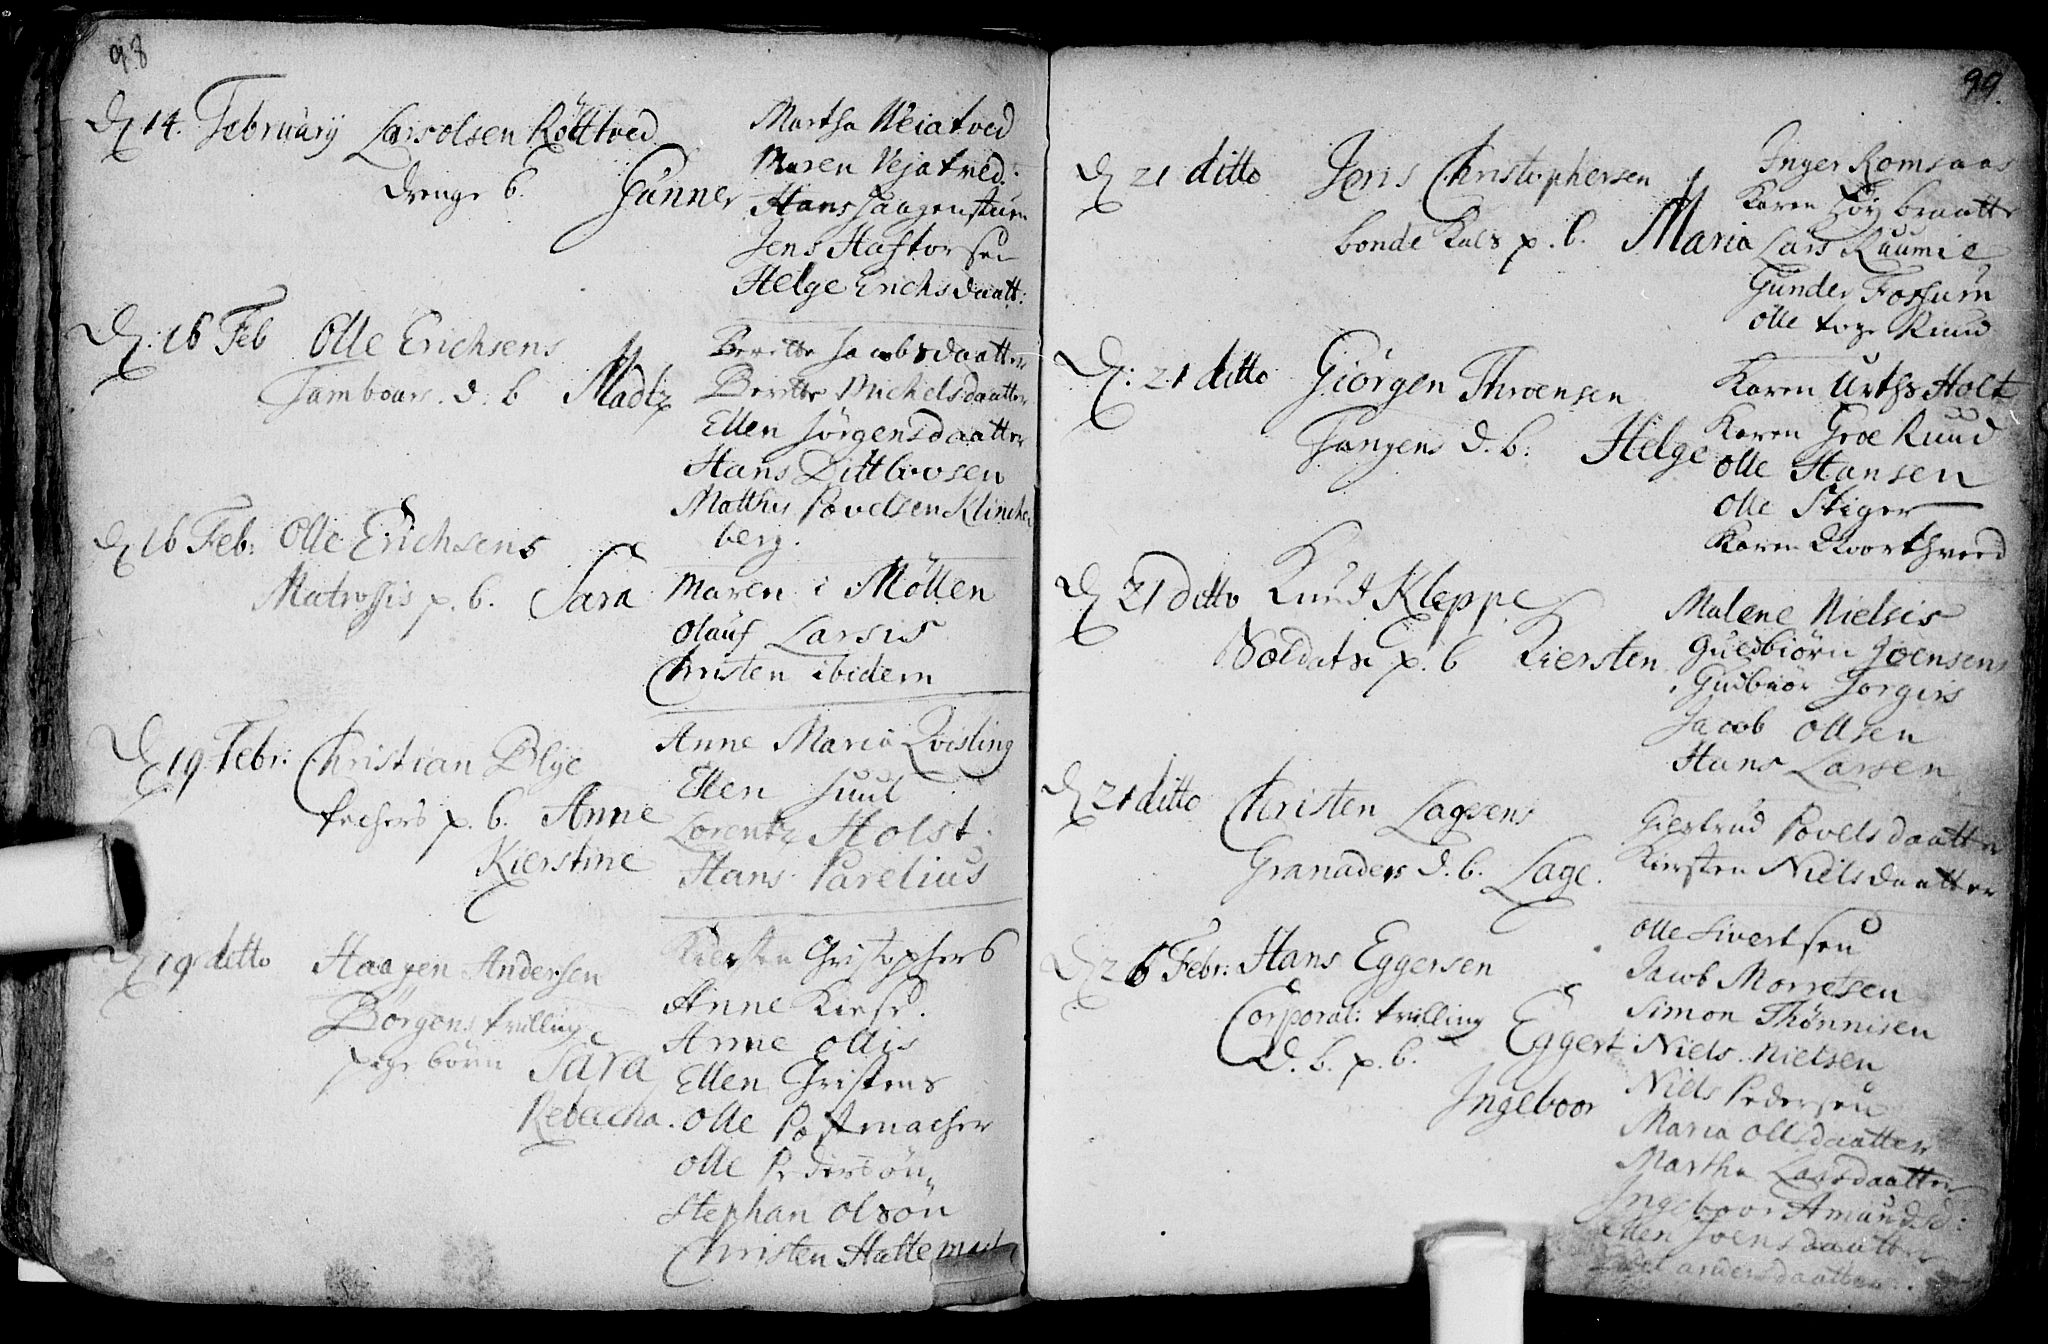 98
D 14. February Lars olsen Röltved
drenge b. Gunner
Martha Weiatved
Maren Vejatved:
Hans Haagensturn
Jens Haftorsen
Helge Erichsdaatt:
D. 16 Feb Olle Erichsens
Tambours. d. b Madtz
Berette Jacobsdaatter
Berette Michelsdaatter
Ellen Jörgensdaatter
Hans Dittlovsen
Matthis Povelsen Klincken
berg.
D 16 Feb: Olle Erichsens
Matrossis p. b. Sara
Maren i Möllen
Olauf Larsis
Christen ibidem
D 19 Febr: Christian Blye
techers p. b. Anne
Kierstine
Anne Maria Qvisling
Ellen Juul
Lorentz Holst.
Hans Parelius
D 19 ditto Haagen Andersen
Börgens trilling
pige börn Sara
Rebecha.
Kiersten Christophers
Anne Kiese.
Anne Ollis
Ellen Christens
Olle Postmacher
Olle Pedersön
Stephan Olsön
Christen Hattemach
99.
D 21 ditto Joris Christophersen
bonde Kals p. b. Maria
Inger Romsaas
Karen Höy braatte
Lars Ruumie
Gunder Fossum
Olle toge Ruud
D: 21 ditto Giörgen Throensen
Tangens d. b: Helge
Karen Urths Holt
Karen Groe Ruud
Olle Hansen
Olle Stiger
Karen Qvorthveed
D 21 Ditto Knud Kleppe
Soldats p. b Kiersten
Malene Nielsis
Guedbiörn Joensens
Gudbiör Jorgis
Jacob Ollsen
Hans Larsen
D 21 ditto Christen Lagesens
Granaders d. b. Lage.
Giertrud Povelsdaatter
Kiersten Nielsdaatter
D 26 Febr: Hans Eggersen
Corporal: trilling Eggert
d. b. p. b. Ingeboor
Olle Sivertsen
Jacob Morretsen
Simon Thönnisen
Niels Nielsen
Niels Pedersen
Maria Ollsdaatter
Martha Larsdaatter
Ingeboor Amundsd:
Ellen Joensdaatter
andersdaatter.